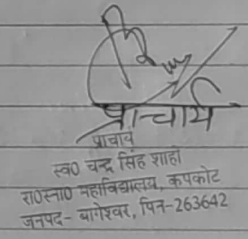 प्राचार्य
प्राचार्य
स्व0 चन्द्र सिंह शाही
रा0स्ना0 महाविद्यालय, कपकोट
जनपद- बागेश्वर, पिन-263642